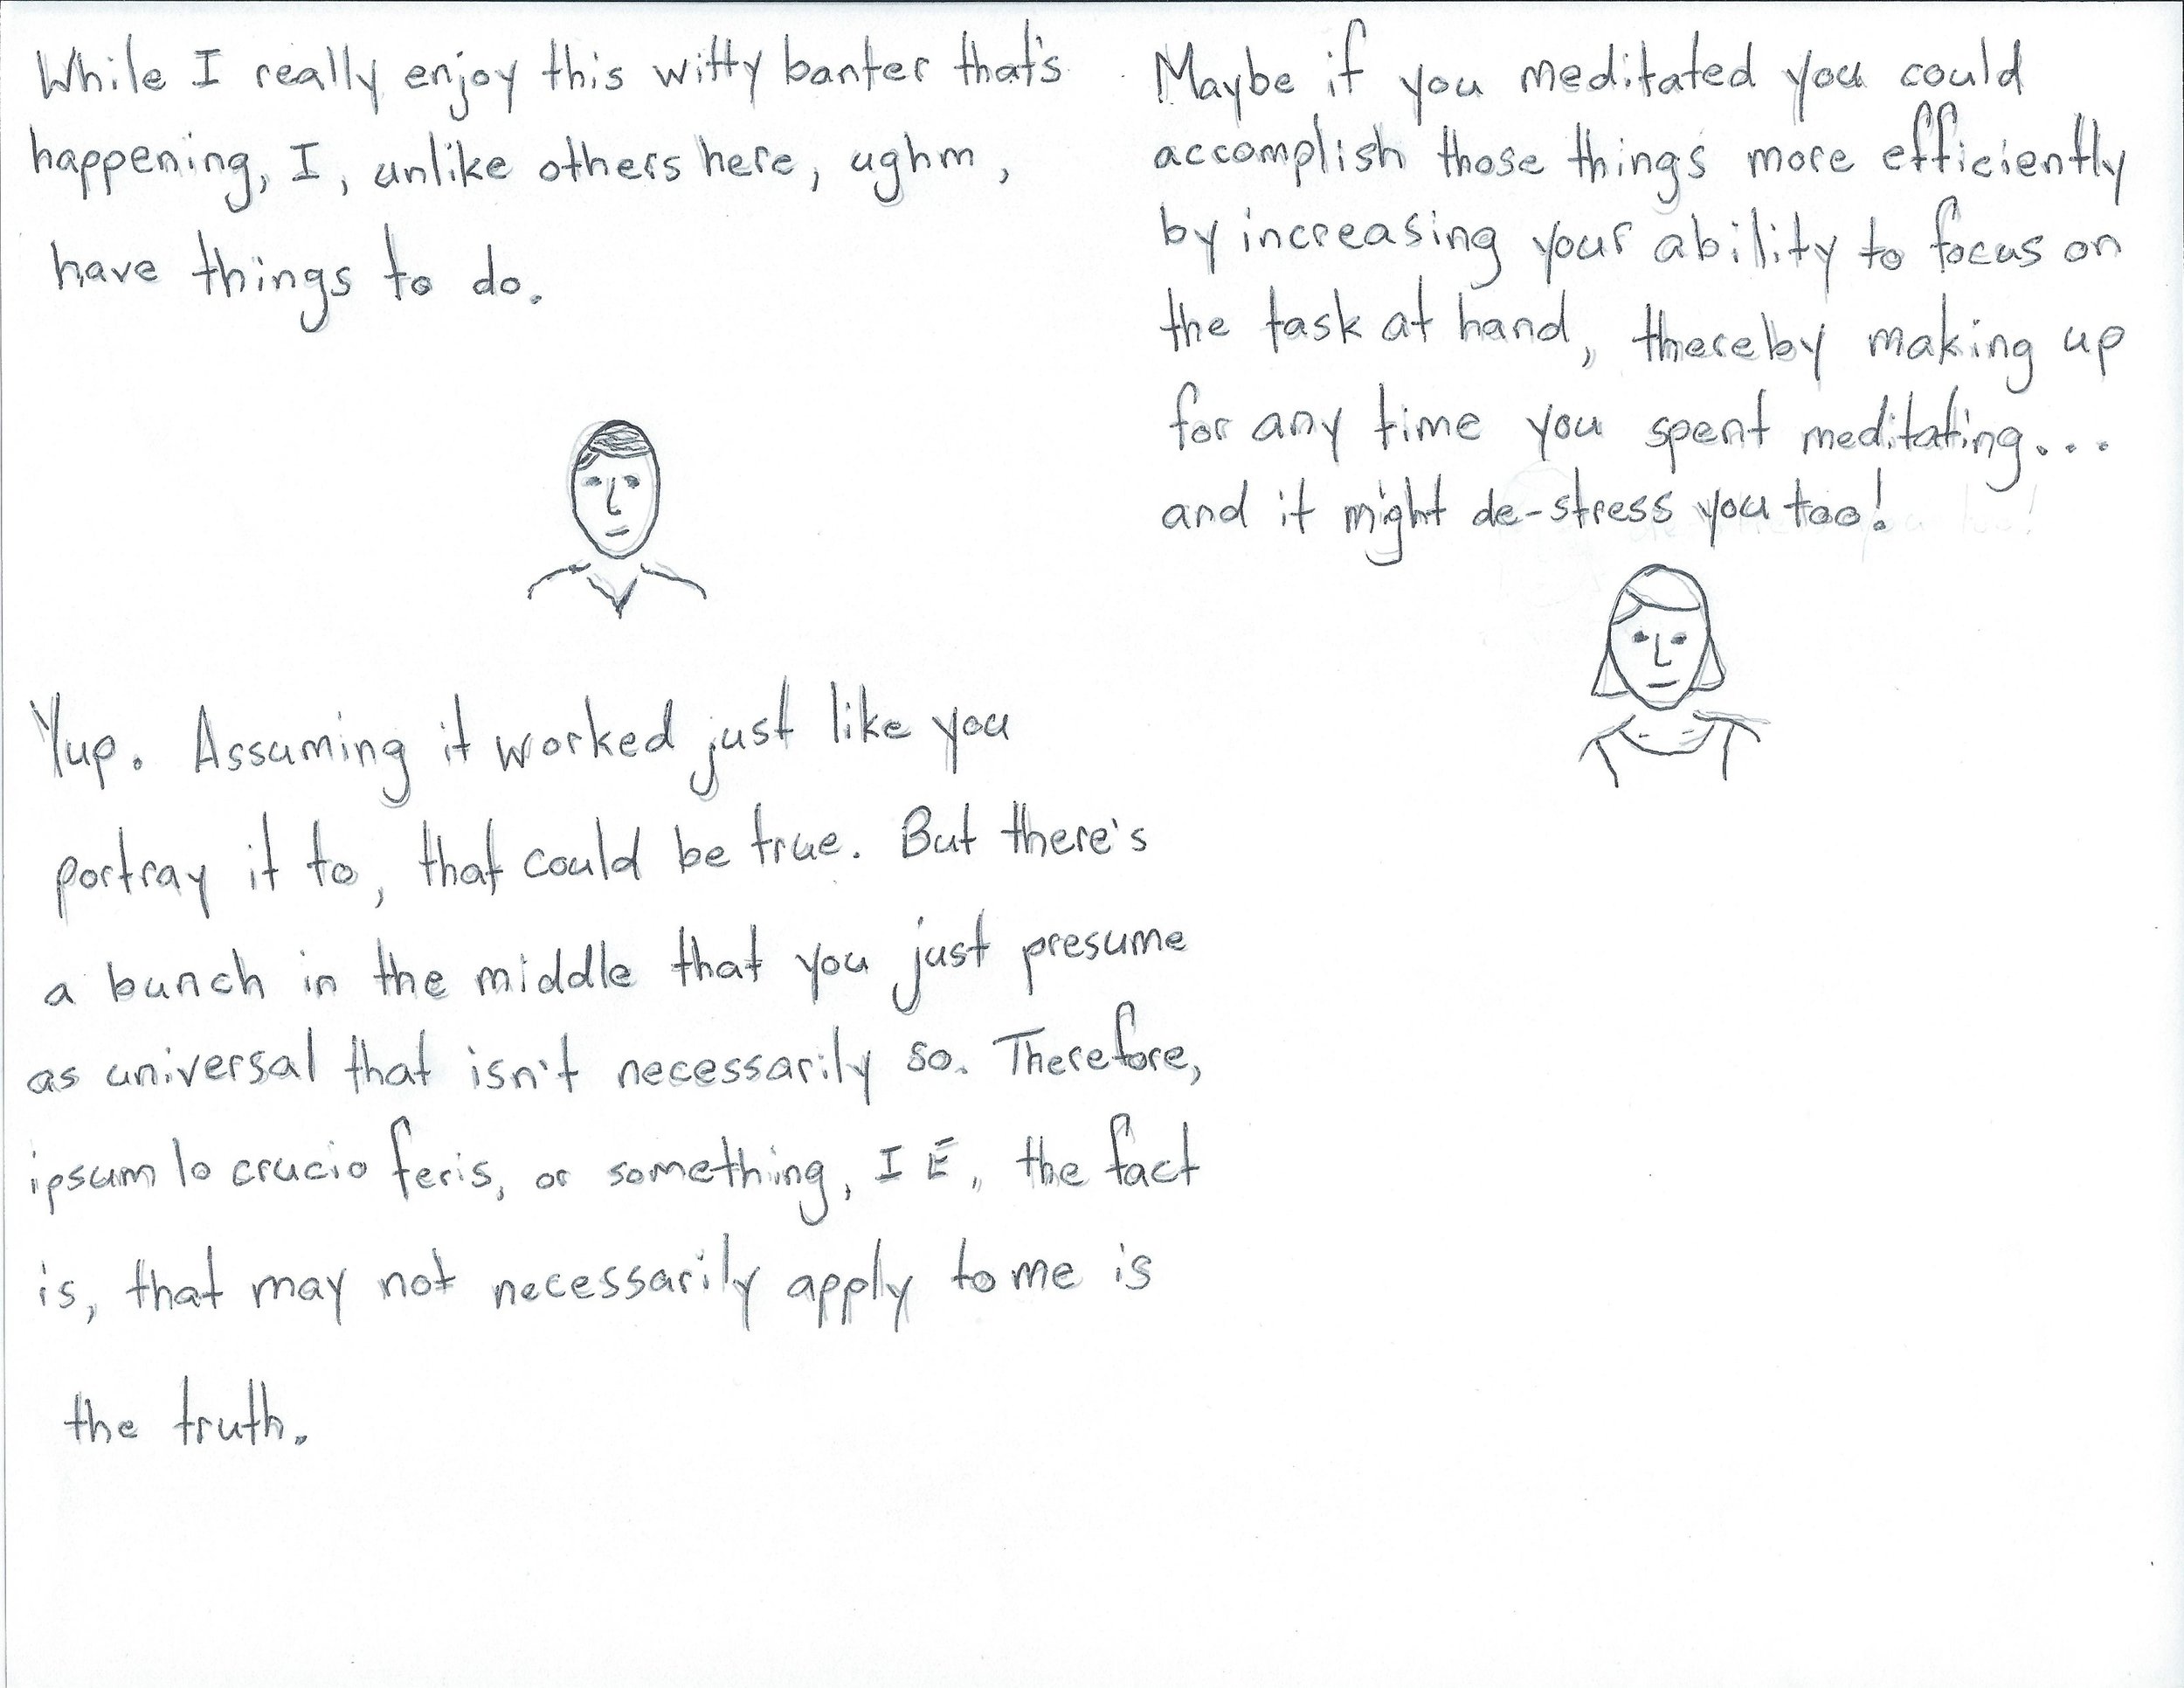 While I really enjoy this witty banter that's
happening, I, unlike others here, ughm,
have things to do.
Maybe if you meditated you could
accomplish those things more efficiently
by increasing your ability to focus on
the task at hand, thereby making up
for any time you spent meditating...
and it might de-stress you too!
Yup. Assuming it worked just like you
portray it to, that could be true. But there's
a bunch in the middle that you just presume
as universal that isn't necessarily so. Therefore,
ipsum lo crucio feris, or something, I E, the fact
is, that may not necessarily apply to me is
the truth.